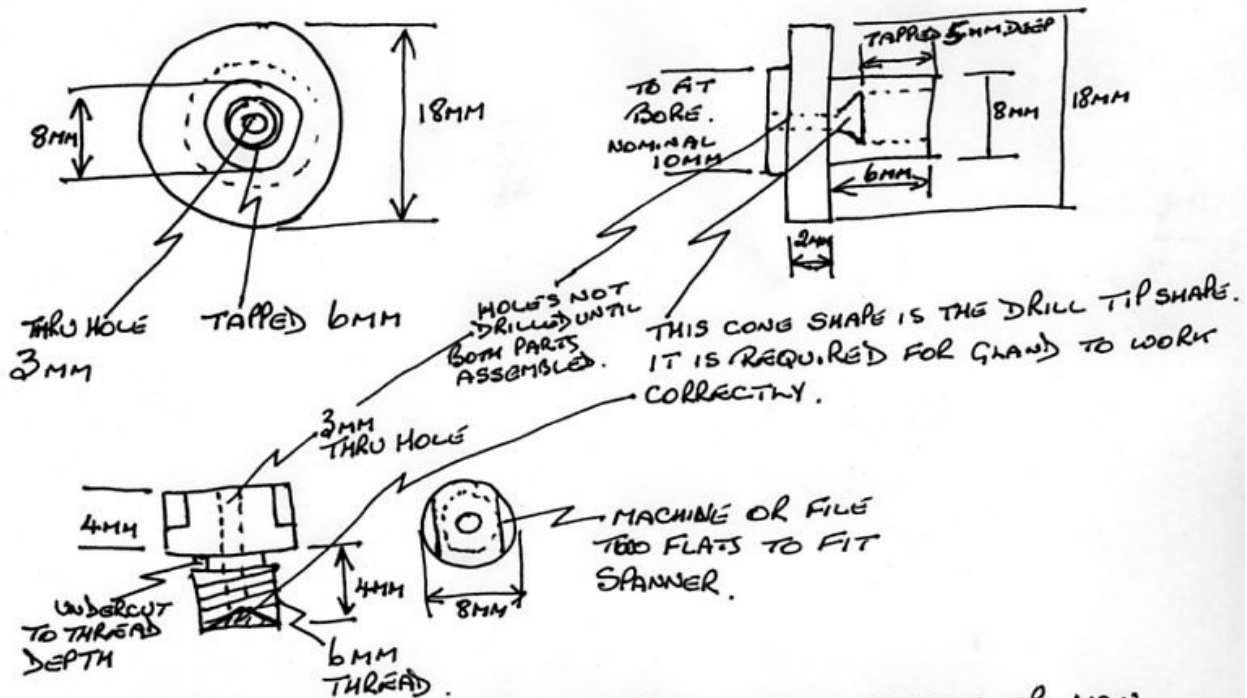 8MM
18MM
THRU HOLE
3MM
TAPPED 6MM
TO FIT
BORE.
NOMINAL
10MM
TAPPED 5MM DEEP
8MM
18MM
6MM
2MM
HOLES NOT
DRILLED UNTIL
BOTH PARTS
ASSEMBLED.
THIS CONE SHAPE IS THE DRILL TIP SHAPE.
IT IS REQUIRED FOR GLAND TO WORK
CORRECTLY.
3MM
THRU HOLE
4MM
UNDERCUT
TO THREAD
DEPTH
4MM
6MM
THREAD.
8MM
MACHINE OR FILE
TWO FLATS TO FIT
SPANNER.